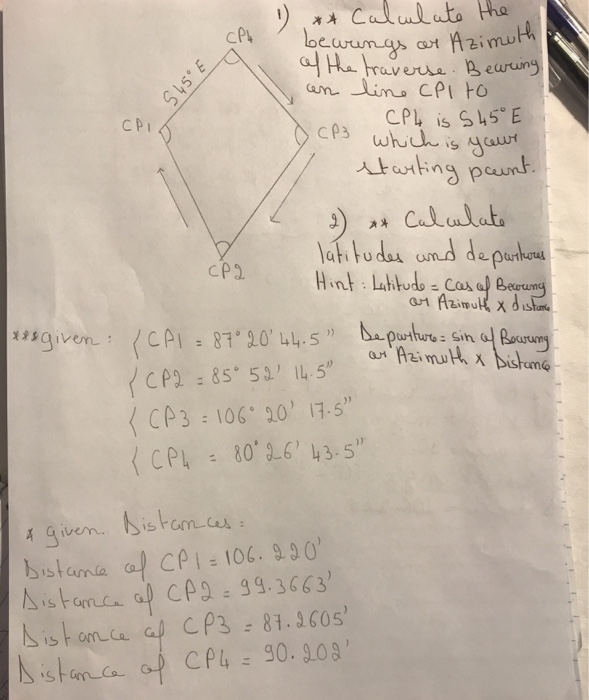 1) ** Calculate the
bearings or Azimuth
of the traverse. Bearing
on line CP1 to
CP4 is S45°E
which is your
starting point.
CP4
S45°E
CP1
CP3
CP2
2) ** Calculate
latitudes and departures
Hint: Latitude = Cos of Bearing
or Azimuth x distance
Departure = sin of Bearing
or Azimuth x Distance
***given: { CP1 = 87° 20' 44.5"
{ CP2 = 85° 52' 14.5"
{ CP3 = 106° 20' 17.5"
{ CP4 = 80° 26' 43.5"
* given Distances:
Distance of CP1 = 106.220'
Distance of CP2 = 99.3663'
Distance of CP3 = 87.2605'
Distance of CP4 = 90.202'